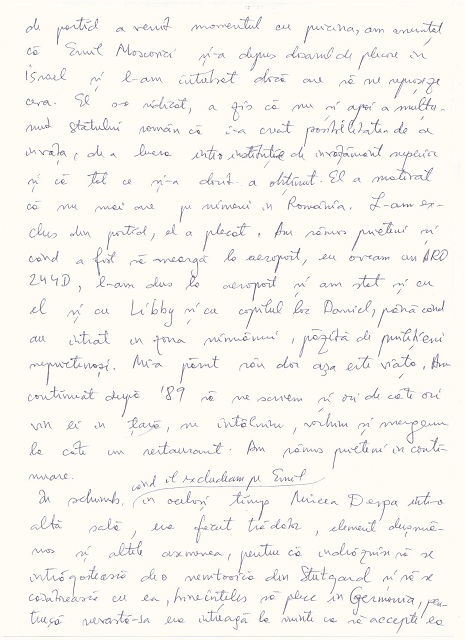 de partid a venit momentul cu pricina, am anunțat
că Emil Moscovici și-a depus dosarul de plecare in
Israel și l-am întrebat dacă are să ne reproșeze
ceva. El s-a ridicat, a zis că nu și apoi a mulțu-
mit statului român că i-a creat posibilitatea de a
invața, de a lucra intr-o instituție de invățământ superior
și că tot ce și-a dorit a obținut. El a motivat
că nu mai are pe nimeni in România. L-am ex-
clus din partid, el a plecat. Am rămas prieteni și
când a fost să meargă la aeroport, eu aveam un ARO
244D, l-am dus la aeroport și am stat și cu
el și cu Libby și cu copilul lor Daniel, până când
au intrat in zona nimănui, păzită de
neprietenoși. Mi-a părut rău dar asta este viața. Am
continuat după '89 să ne scriem și ori de câte ori
vin ei in țară, ne intâlnim, vorbim și mergem
la câte un restaurant. Am rămas prieteni in conti-
nuare.
când il excludeam pe Emil
In schimb, in același timp Mircea Derpa intr-o
altă sală, era făcut trădător, element dușmă-
nos și altele asemenea, pentru că indrăznise să se
intrăgostească de o nemțoaică din Stutgard și să se
casătorească cu ea, bineințeles să plece in Germania, pen-
trucă nevastă-sa era intreagă la minte ca să accepte ea